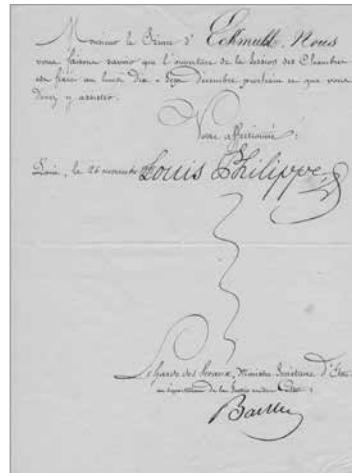 Monsieur le Prince d'Eckmuhl, Nous
vous faisons savoir que l'ouverture de la Session des Chambres
est fixée au lundi dix-sept décembre prochain et que vous
devez y assister.
Votre affectionné :
Paris, le 26 novembre
Louis Philippe
Le garde des sceaux, Ministre Secrétaire d'Etat
au département de la Justice et des Cultes,